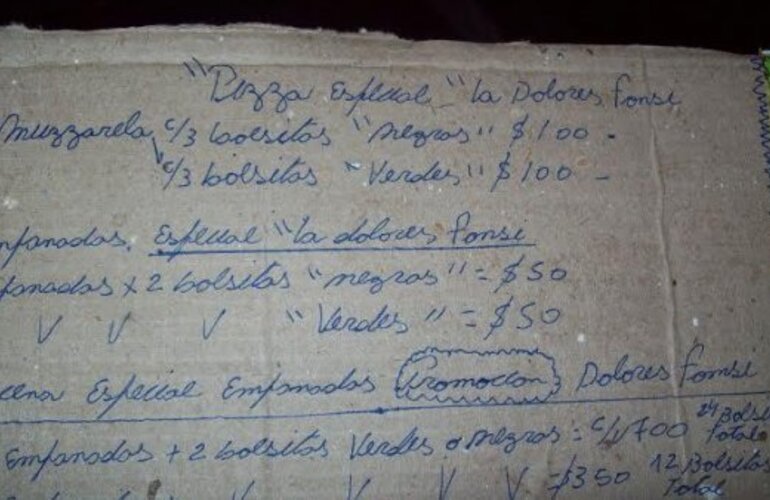 "Pizza Especial" la Dolores Fonsi
Muzzarela c/3 bolsitas "negras" $100 -
c/3 bolsitas "Verdes" $100 -
mpanadas, Especial "la dolores fonsi
panadas x 2 bolsitas "negras" = $50
V V V "Verdes" = $50
cena Especial Empanadas Promocion Dolores fonsi
Empanadas + 2 bolsitas Verdes o negras = 700 24 Bolsi
Total
V V V V = $350 12 Bolsitas
Total